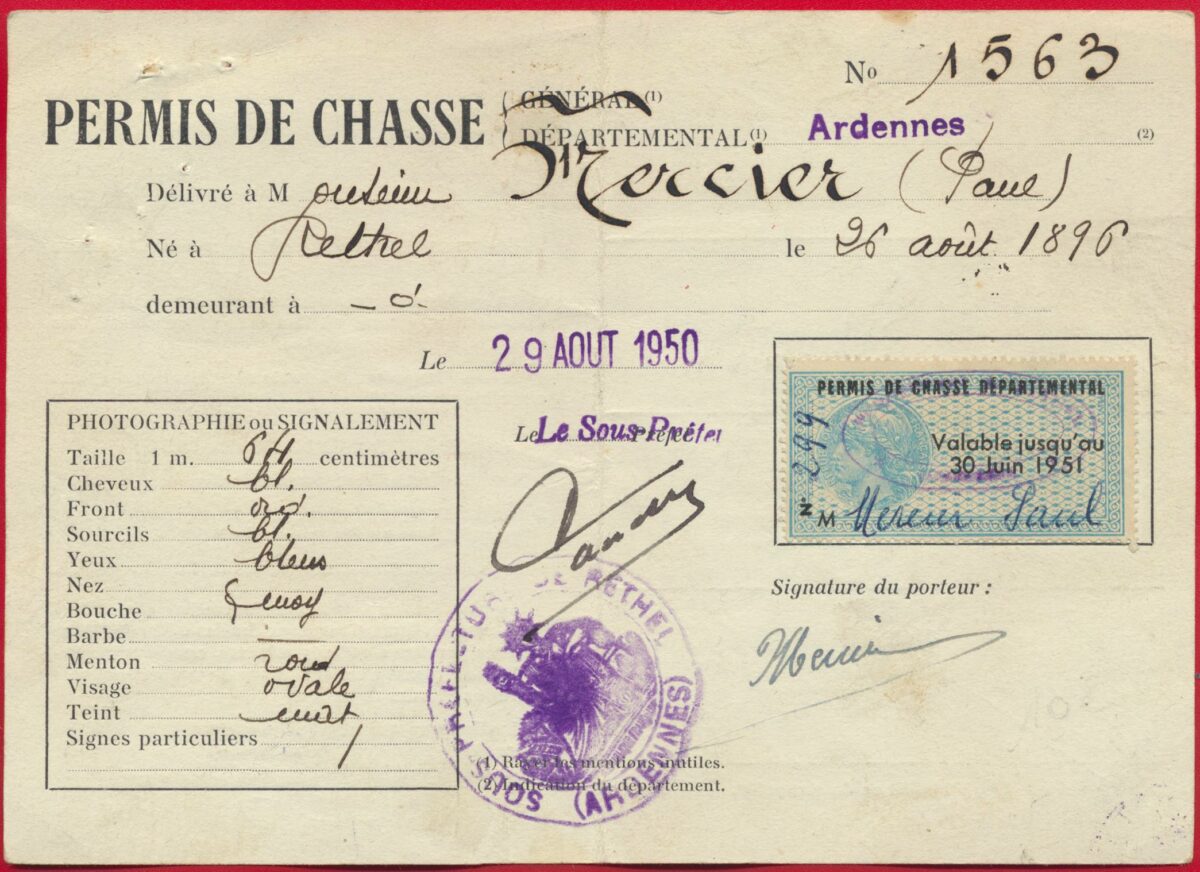 No 1563
PERMIS DE CHASSE
GÉNÉRAL (1)
DÉPARTEMENTAL (1) Ardennes (2)
Délivré à Monsieur Mercier (Paul)
Né à Rethel le 26 août 1896
demeurant à — d°
Le 29 AOUT 1950
Le Sous-Préfet
PHOTOGRAPHIE ou SIGNALEMENT
Taille 1 m. 64 centimètres
Cheveux bl.
Front ord.
Sourcils bl.
Yeux bleus
Nez
Bouche moy
Barbe —
Menton rond
Visage ovale
Teint mat
Signes particuliers
PERMIS DE CHASSE DÉPARTEMENTAL
Valable jusqu'au
30 Juin 1951
N° 299
M Mercier Paul
Signature du porteur :
Mercier
SOUS-PRÉFECTURE DE RETHEL
(ARDENNES)
(1) Rayer les mentions inutiles.
(2) Indication du département.